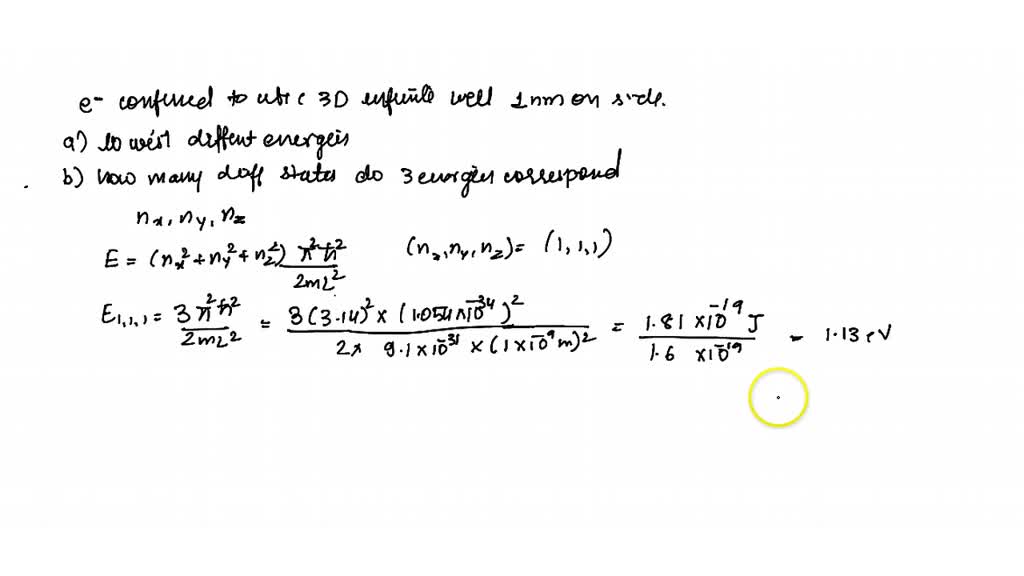 e- confined to cubic 3D infinite well 1nm on side.
a) lowest diffent energeis
b) how many diff states do 3 energies correspond
nx, ny, nz
E = (nx² + ny² + nz²) π²ħ² / 2mL² (nx, ny, nz) = (1, 1, 1)
E1,1,1 = 3π²ħ² / 2mL² = 3(3.14)² × (1.054×10^-34)² / 2× 9.1×10^-31 × (1×10^-9 m)² = 1.81×10^-19 J / 1.6 ×10^-19 = 1.13 eV